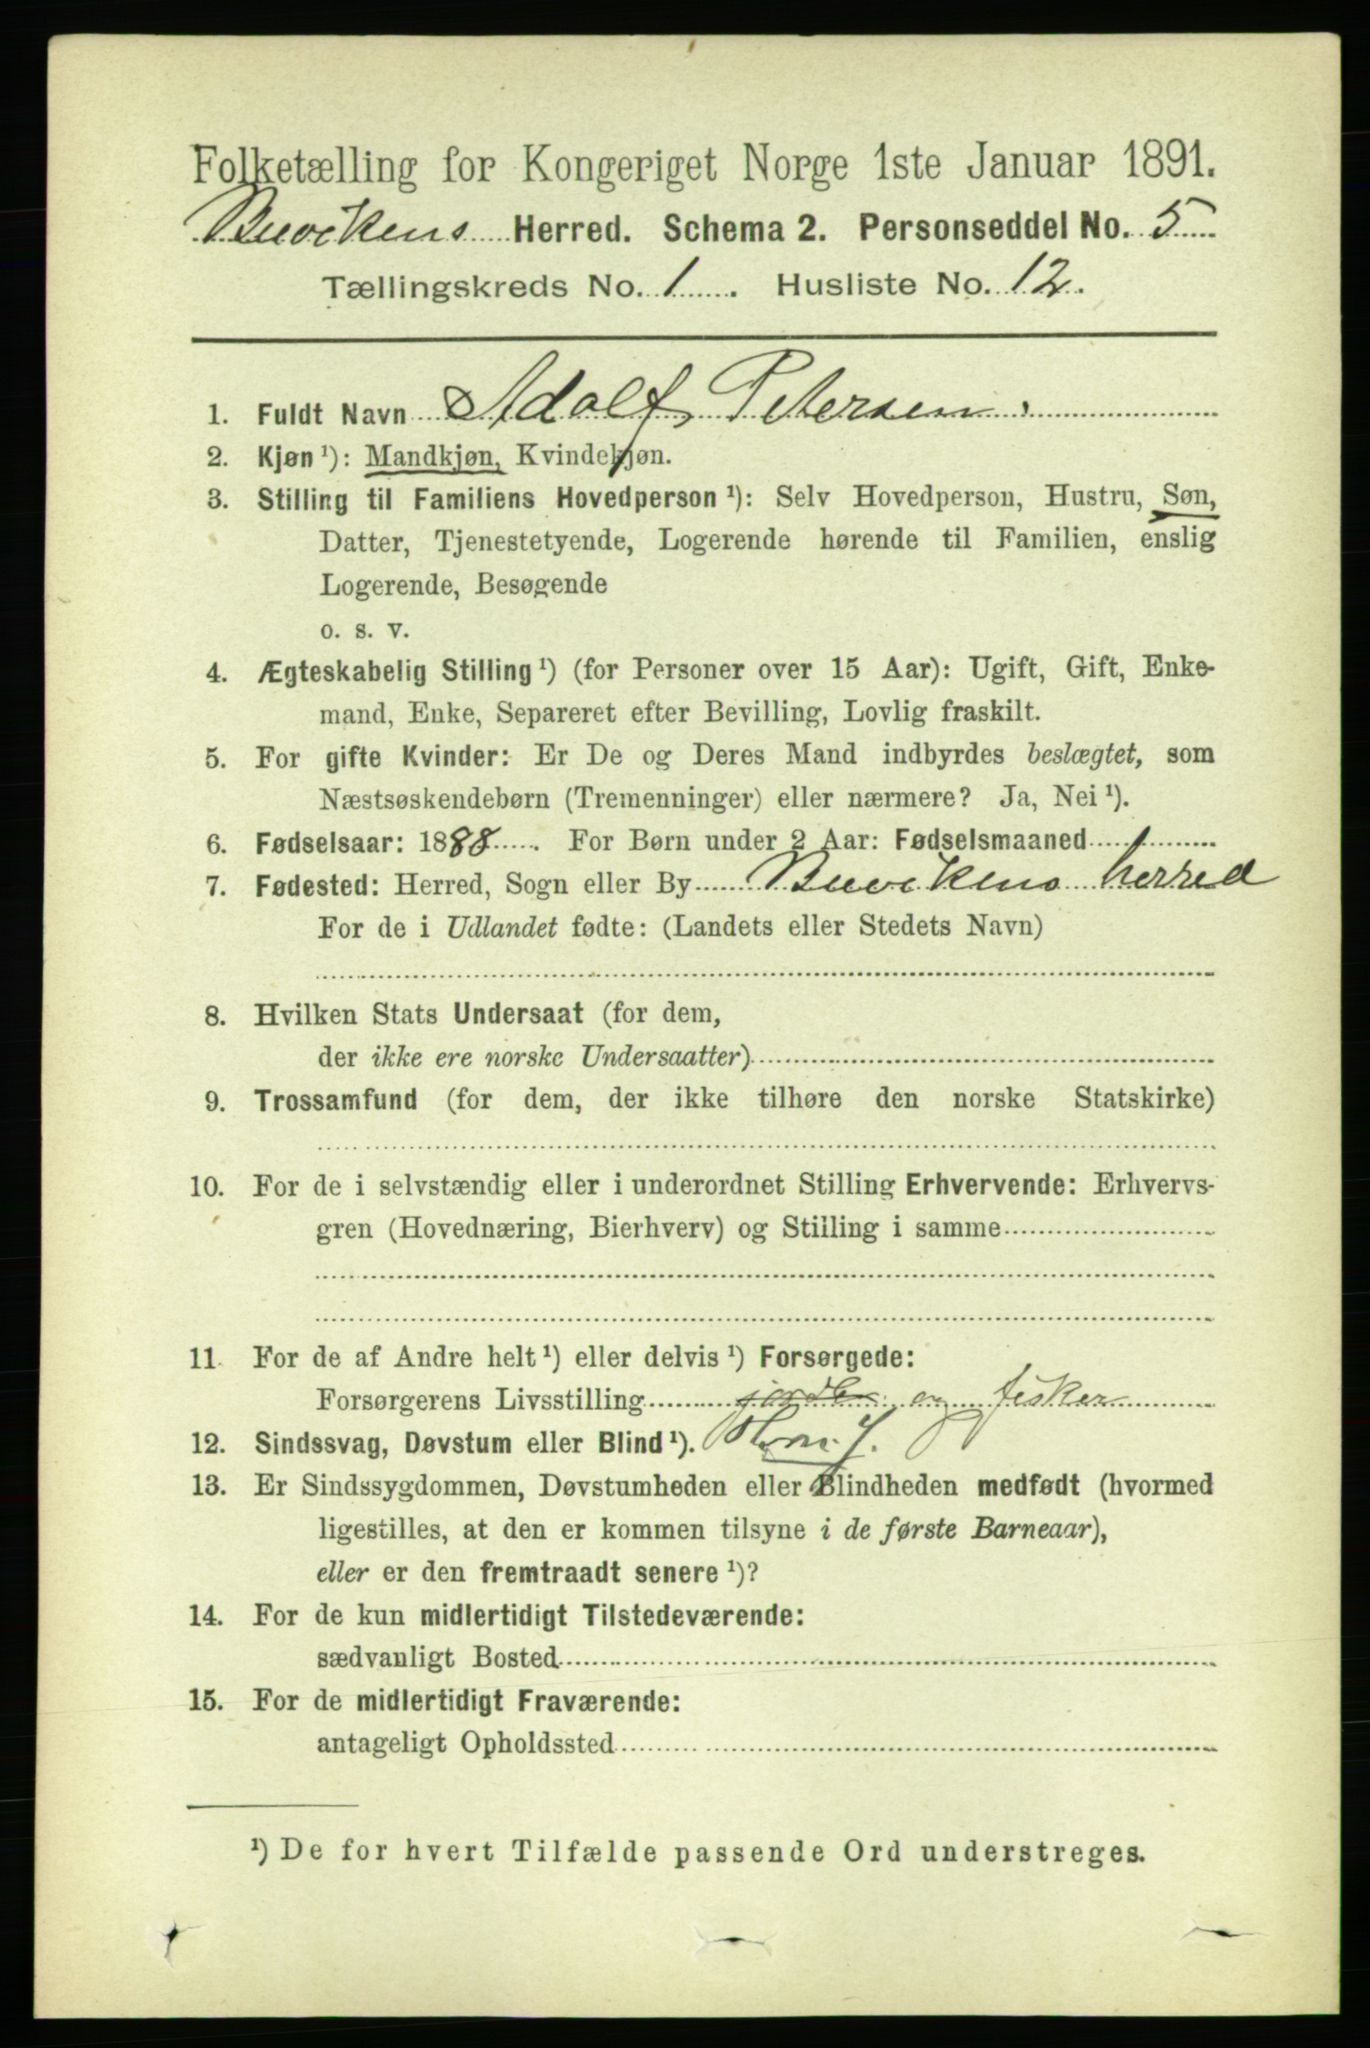 Folketælling for Kongeriget Norge 1ste Januar 1891.
Buvikens Herred. Schema 2. Personseddel No. 5
Tællingskreds No. 1. Husliste No. 12.
1. Fuldt Navn Adolf Petersen
2. Kjøn ¹): Mandkjøn, Kvindekjøn.
3. Stilling til Familiens Hovedperson ¹): Selv Hovedperson, Hustru, Søn,
Datter, Tjenestetyende, Logerende hørende til Familien, enslig
Logerende, Besøgende
o. s. v.
4. Ægteskabelig Stilling ¹) (for Personer over 15 Aar): Ugift, Gift, Enke-
mand, Enke, Separeret efter Bevilling, Lovlig fraskilt.
5. For gifte Kvinder: Er De og Deres Mand indbyrdes beslægtet, som
Næstsøskendebørn (Tremenninger) eller nærmere? Ja, Nei ¹).
6. Fødselsaar: 1888. For Børn under 2 Aar: Fødselsmaaned
7. Fødested: Herred, Sogn eller By Buvikens herred
For de i Udlandet fødte: (Landets eller Stedets Navn)
8. Hvilken Stats Undersaat (for dem,
der ikke ere norske Undersaatter)
9. Trossamfund (for dem, der ikke tilhøre den norske Statskirke)
10. For de i selvstændig eller i underordnet Stilling Erhvervende: Erhvervs-
gren (Hovednæring, Bierhverv) og Stilling i samme
11 For de af Andre helt ¹) eller delvis ¹) Forsørgede:
Forsørgerens Livsstilling og fisker
12. Sindssvag, Døvstum eller Blind ¹).
13. Er Sindssygdommen, Døvstumheden eller Blindheden medfødt (hvormed
ligestilles, at den er kommen tilsyne i de første Barneaar),
eller er den fremtraadt senere ¹)?
14. For de kun midlertidigt Tilstedeværende:
sædvanligt Bosted
15. For de midlertidigt Fraværende:
antageligt Opholdssted
¹) De for hvert Tilfælde passende Ord understreges.